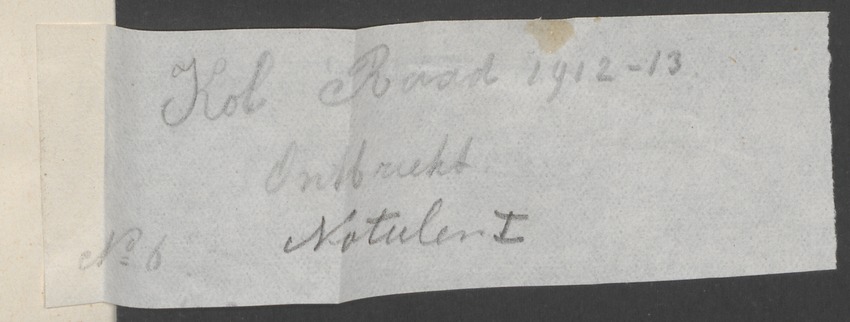 Kol Raad 1912-13.
Ontbreekt
Notulen I
No 6